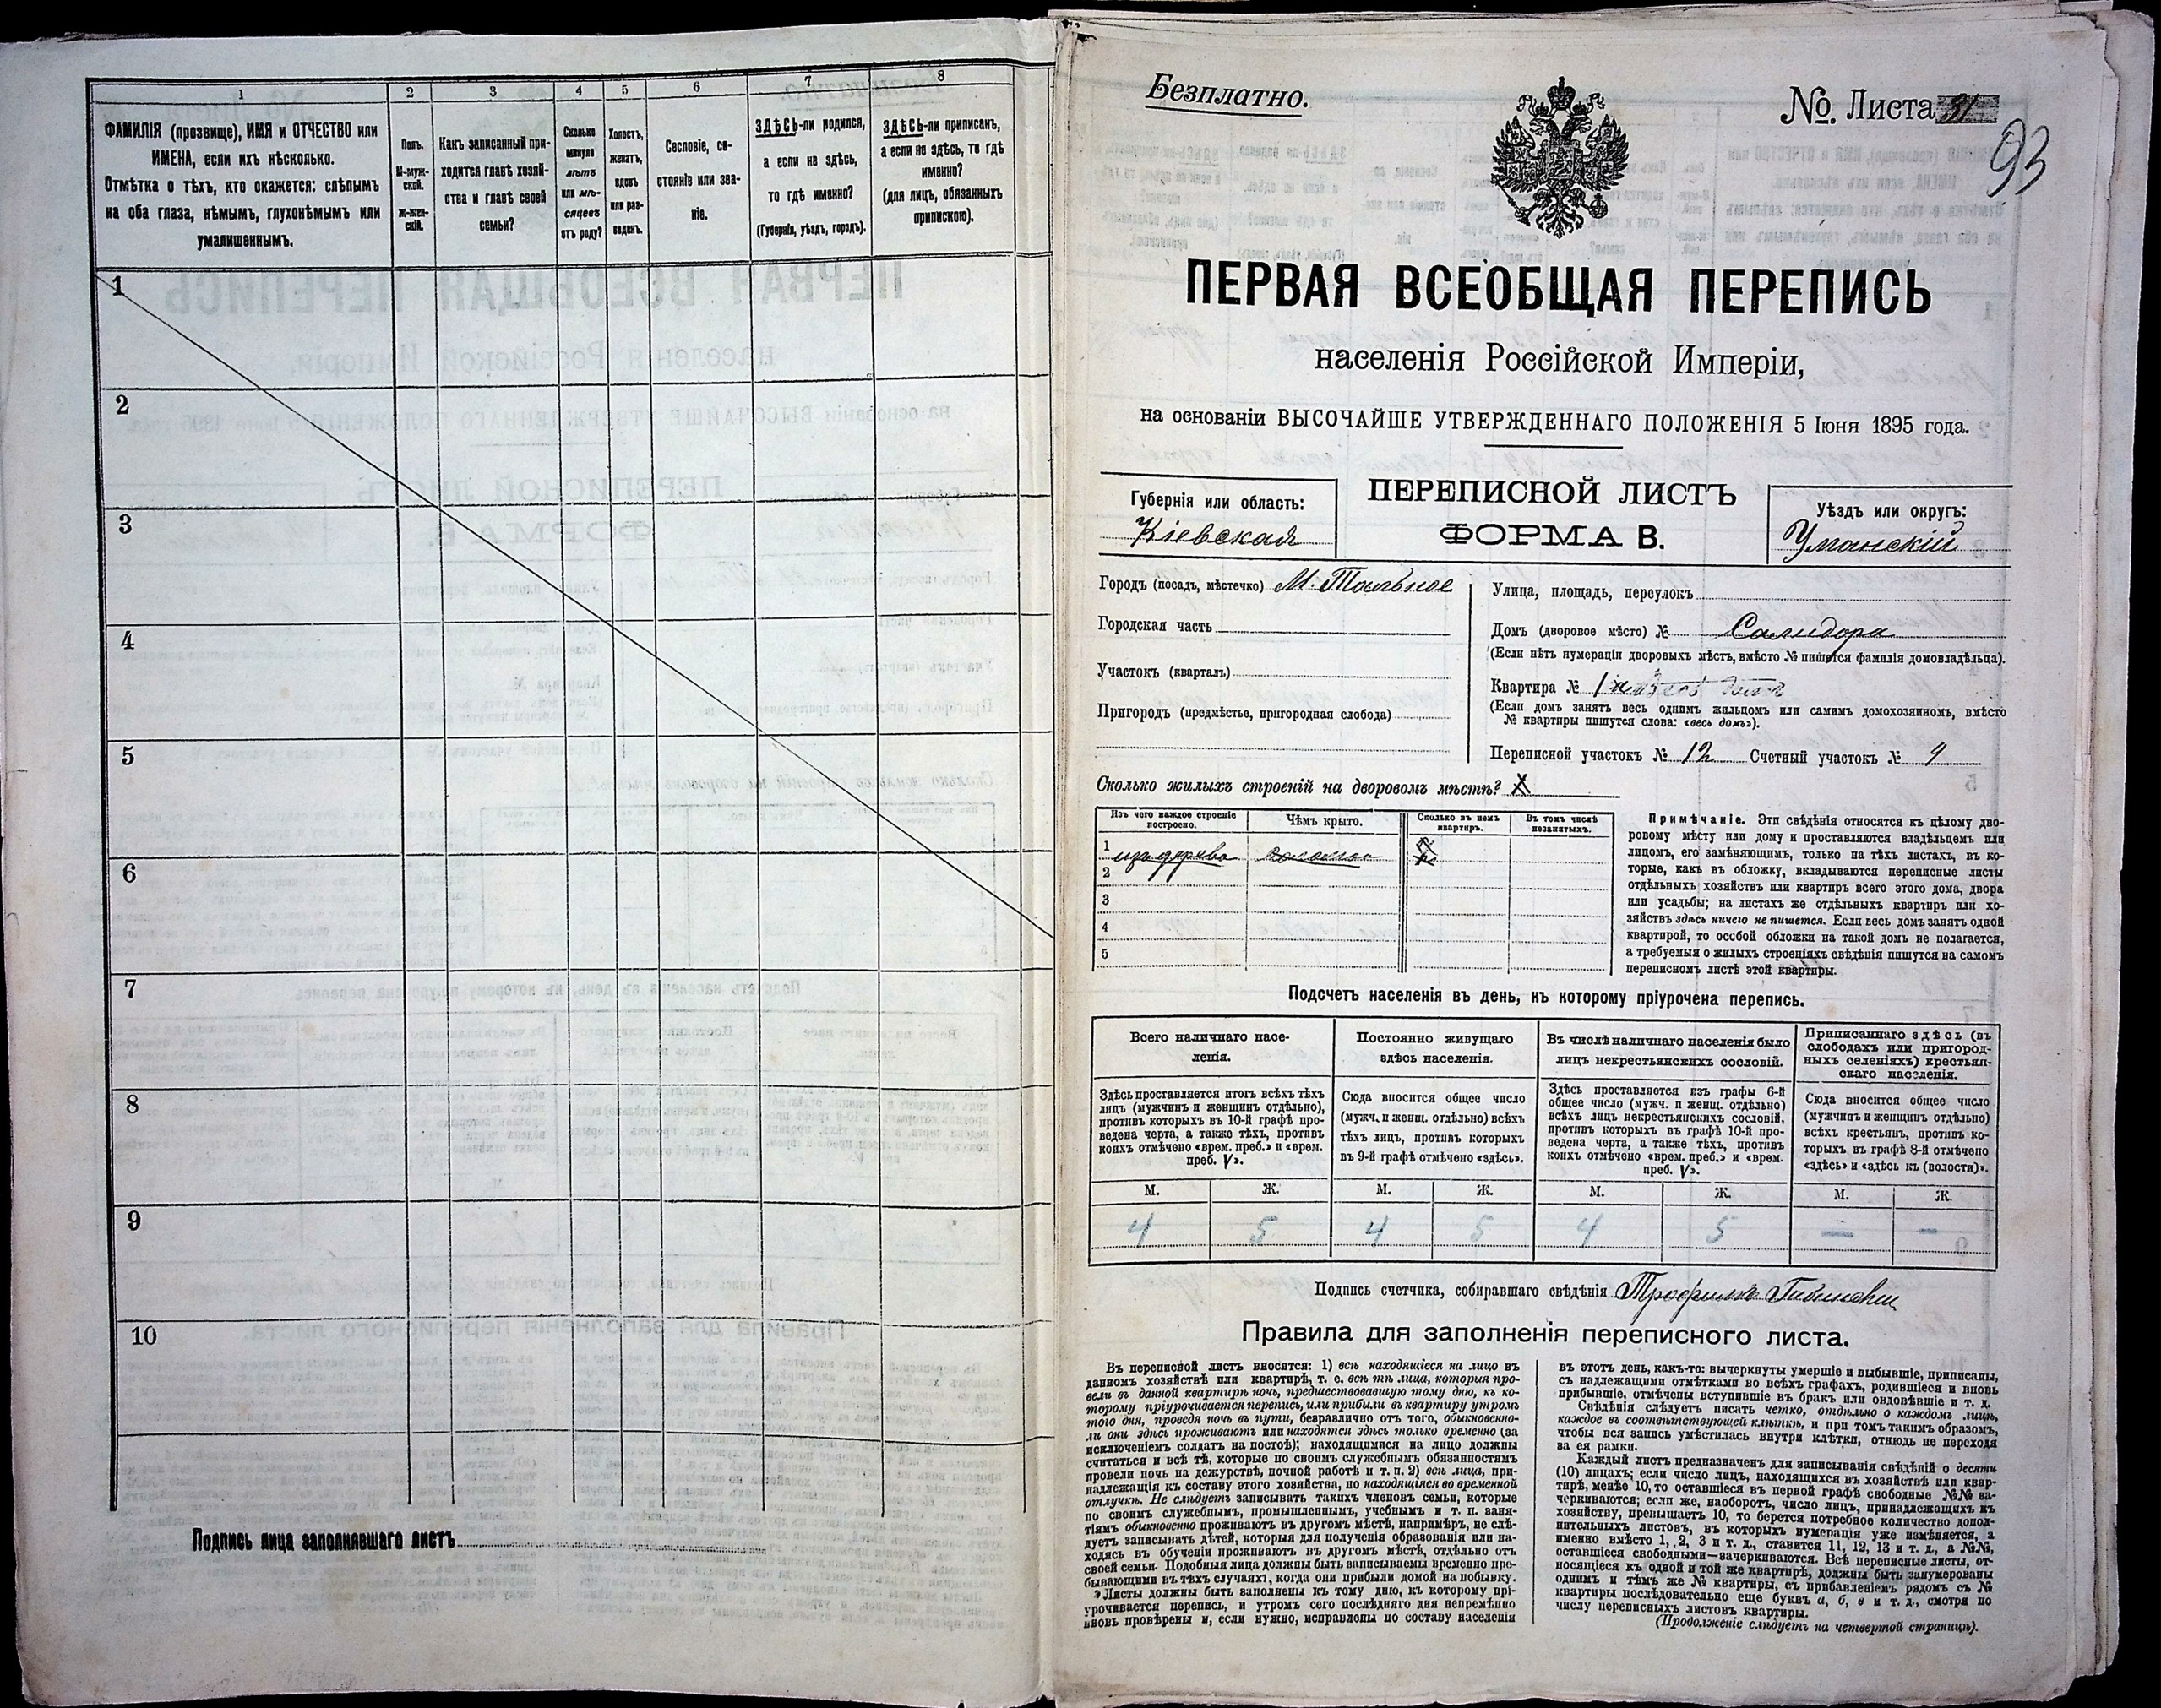 1
2
3
4
5
6
7
8
ФАМИЛІЯ (прозвище), ИМЯ и ОТЧЕСТВО или
ИМЕНА, если ихъ нѣсколько.
Отмѣтка о тѣхъ, кто окажется: слѣпымъ
на оба глаза, нѣмымъ, глухонѣмымъ или
умалишеннымъ.
Полъ.
М-муж-
ской.
Ж-жен-
скій.
Какъ записанный при-
ходится главѣ хозяй-
ства и главѣ своей
семьи?
Сколько
минуло
лѣтъ
или мѣ-
сяцевъ
отъ роду?
Холостъ,
женатъ,
вдовъ
или раз-
веденъ.
Сословіе, со-
стояніе или зва-
ніе.
ЗДѢСЬ-ли родился,
а если не здѣсь,
то гдѣ именно?
(Губернія, уѣздъ, городъ).
ЗДѢСЬ-ли приписанъ,
а если не здѣсь, то гдѣ
именно?
(для лицъ, обязанныхъ
припискою).
1
2
3
4
5
6
7
8
9
10
Подпись лица заполнявшаго листъ
Безплатно.
№. Листа 31
93
ПЕРВАЯ ВСЕОБЩАЯ ПЕРЕПИСЬ
населенія Россійской Имперіи,
на основаніи ВЫСОЧАЙШЕ УТВЕРЖДЕННАГО ПОЛОЖЕНІЯ 5 Іюня 1895 года.
Губернія или область:
Кіевская
ПЕРЕПИСНОЙ ЛИСТЪ
ФОРМА В.
Уѣздъ или округъ:
Уманскій
Городъ (посадъ, мѣстечко) М. Тальное
Городская часть
Участокъ (кварталъ)
Пригородъ (предмѣстье, пригородная слобода)
Улица, площадь, переулокъ
Домъ (дворовое мѣсто) № Салидора
(Если нѣтъ нумераціи дворовыхъ мѣстъ, вмѣсто № пишется фамилія домовладѣльца).
Квартира № 1
(Если домъ занятъ весь однимъ жильцомъ или самимъ домохозяиномъ, вмѣсто
№ квартиры пишутся слова: «весь домъ»).
Переписной участокъ № 12 Счетный участокъ № 9
Сколько жилыхъ строеній на дворовомъ мѣстѣ?
Изъ чего каждое строеніе
построено.
Чѣмъ крыто.
Сколько въ немъ
квартиръ.
Въ томъ числѣ
незанятыхъ.
1 изъ дерева соломою
2
3
4
5
Примѣчаніе. Эти свѣдѣнія относятся къ цѣлому дво-
ровому мѣсту или дому и проставляются владѣльцемъ или
лицомъ, его замѣняющимъ, только на тѣхъ листахъ, въ ко-
торые, какъ въ обложку, вкладываются переписные листы
отдѣльныхъ хозяйствъ или квартиръ всего этого дома, двора
или усадьбы; на листахъ же отдѣльныхъ квартиръ или хо-
зяйствъ здѣсь ничего не пишется. Если весь домъ занятъ одной
квартирой, то особой обложки на такой домъ не полагается,
а требуемыя о жилыхъ строеніяхъ свѣдѣнія пишутся на самомъ
переписномъ листѣ этой квартиры.
Подсчетъ населенія въ день, къ которому пріурочена перепись.
Всего наличнаго насе-
ленія.
Постоянно живущаго
здѣсь населенія.
Въ числѣ наличнаго населенія было
лицъ некрестьянскихъ сословій.
Приписаннаго здѣсь (въ
слободахъ или пригород-
ныхъ селеніяхъ) крестьян-
скаго населенія.
Здѣсь проставляется итогъ всѣхъ тѣхъ
лицъ (мужчинъ и женщинъ отдѣльно),
противъ которыхъ въ 10-й графѣ про-
ведена черта, а также тѣхъ, противъ
коихъ отмѣчено «врем. преб.» и «врем.
преб. V».
Сюда вносится общее число
(мужч. и женщ. отдѣльно) всѣхъ
тѣхъ лицъ, противъ которыхъ
въ 9-й графѣ отмѣчено «здѣсь».
Здѣсь проставляется изъ графы 6-й
общее число (мужч. и женщ. отдѣльно)
всѣхъ лицъ некрестьянскихъ сословій,
противъ которыхъ въ графѣ 10-й про-
ведена черта, а также тѣхъ, противъ
коихъ отмѣчено «врем. преб.» и «врем.
преб. V».
Сюда вносится общее число
(мужчинъ и женщинъ отдѣльно)
всѣхъ крестьянъ, противъ ко-
торыхъ въ графѣ 8-й отмѣчено
«здѣсь» и «здѣсь къ (волости)».
М. Ж. М. Ж. М. Ж. М. Ж.
4 5 4 5 4 5 — —
Подпись счетчика, собиравшаго свѣдѣнія Трофимъ
Правила для заполненія переписного листа.
Въ переписной листъ вносятся: 1) всѣ находящіеся на лицо въ
данномъ хозяйствѣ или квартирѣ, т. е. всѣ тѣ лица, которыя про-
вели въ данной квартирѣ ночь, предшествовавшую тому дню, къ ко-
торому пріурочивается перепись, или прибыли въ квартиру утромъ
того дня, проведя ночь въ пути, безразлично отъ того, обыкновенно-
ли они здѣсь проживаютъ или находятся здѣсь только временно (за
исключеніемъ солдатъ на постоѣ); находящимися на лицо должны
считаться и всѣ тѣ, которые по своимъ служебнымъ обязанностямъ
провели ночь на дежурствѣ, ночной работѣ и т. п. 2) всѣ лица, при-
надлежащія къ составу этого хозяйства, но находящіяся во временной
отлучкѣ. Не слѣдуетъ записывать такихъ членовъ семьи, которые
по своимъ служебнымъ, промышленнымъ, учебнымъ и т. п. заня-
тіямъ обыкновенно проживаютъ въ другомъ мѣстѣ, напримѣръ, не слѣ-
дуетъ записывать дѣтей, которыя для полученія образованія или на-
ходясь въ обученіи проживаютъ въ другомъ мѣстѣ, отдѣльно отъ
своей семьи. Подобныя лица должны быть записываемы временно пре-
бывающими въ тѣхъ случаяхъ, когда они прибыли домой на побывку.
Листы должны быть заполнены къ тому дню, къ которому прі-
урочивается перепись, и утромъ сего послѣдняго дня непремѣнно
вновь провѣрены и, если нужно, исправлены по составу населенія
въ этотъ день, какъ-то: вычеркнуты умершіе и выбывшіе, приписаны,
съ надлежащими отмѣтками во всѣхъ графахъ, родившіеся и вновь
прибывшіе, отмѣчены вступившіе въ бракъ или овдовѣвшіе и т. д.
Свѣдѣнія слѣдуетъ писать четко, отдѣльно о каждомъ лицѣ,
каждое въ соотвѣтствующей клѣткѣ, и при томъ такимъ образомъ,
чтобы вся запись умѣстилась внутри клѣтки, отнюдь не переходя
за ея рамки.
Каждый листъ предназначенъ для записыванія свѣдѣній о десяти
(10) лицахъ; если число лицъ, находящихся въ хозяйствѣ или квар-
тирѣ, менѣе 10, то оставшіеся въ первой графѣ свободные №№ за-
черкиваются; если же, наоборотъ, число лицъ, принадлежащихъ къ
хозяйству, превышаетъ 10, то берется потребное количество допол-
нительныхъ листовъ, въ которыхъ нумерація уже измѣняется, а
именно вмѣсто 1, 2, 3 и т. д., ставится 11, 12, 13 и т. д., а №№,
оставшіеся свободными—зачеркиваются. Всѣ переписные листы, от-
носящіеся къ одной и той же квартирѣ, должны быть занумерованы
однимъ и тѣмъ же № квартиры, съ прибавленіемъ рядомъ съ №
квартиры послѣдовательно еще буквъ а, б, в и т. д., смотря по
числу переписныхъ листовъ квартиры.
(Продолженіе слѣдуетъ на четвертой страницѣ).